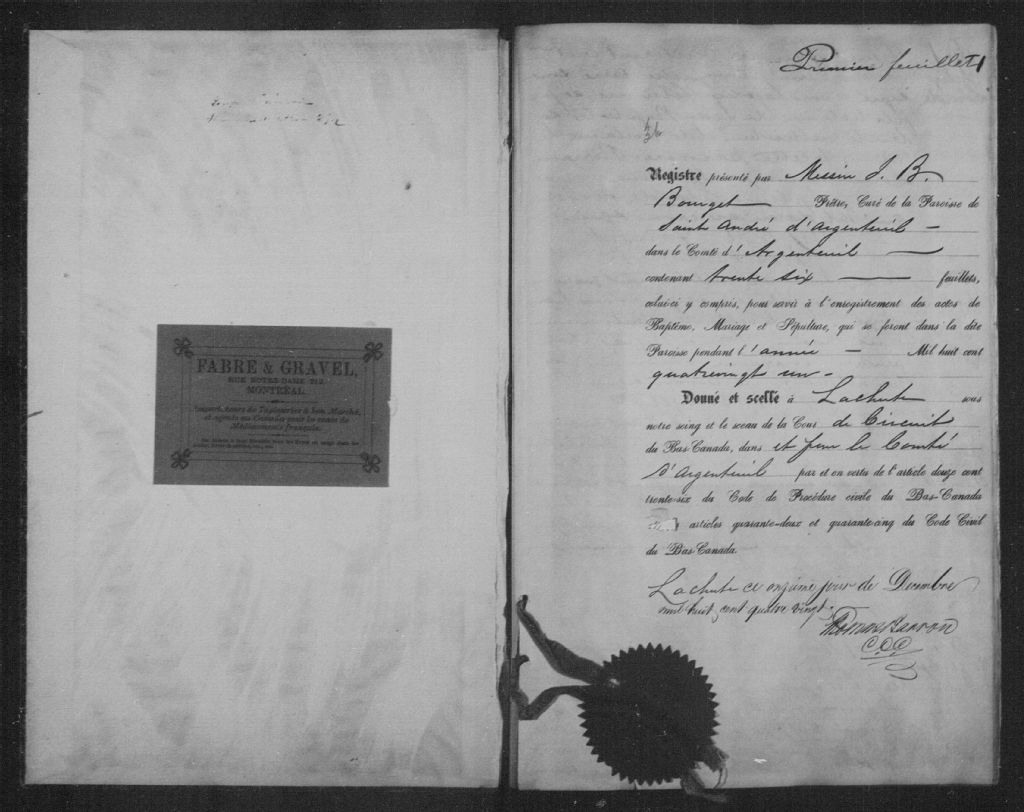 FABRE & GRAVEL,
RUE NOTRE-DAME 219
MONTRÉAL.
de Tapisseries à bon Marché,
et agents au Canada pour la vente de
Médicaments français.
Premier feuillet 1
Registre présenté par Messire J. B.
Bourget Prêtre, Curé de la Paroisse de
Saint André d'Argenteuil -
dans le Comté d' Argenteuil
contenant trente six feuillets,
celui-ci y compris, pour servir à l'enregistrement des actes de
Baptême, Mariage et Sépulture, qui se feront dans la dite
Paroisse pendant l'année - Mil huit cent
quatrevingt un -
Donné et scellé à Lachute sous
notre seing et le sceau de la Cour de Circuit
du Bas-Canada, dans et pour le Comté
D'Argenteuil par et en vertu de l'article douze cent
trente-six du Code de Procédure civile du Bas-Canada
articles quarante-deux et quarante-cinq du Code Civil
du Bas-Canada.
Lachute ce onzième jour de Decembre
mil huit cent quatre vingt.
Thomas Barron
C.C.C